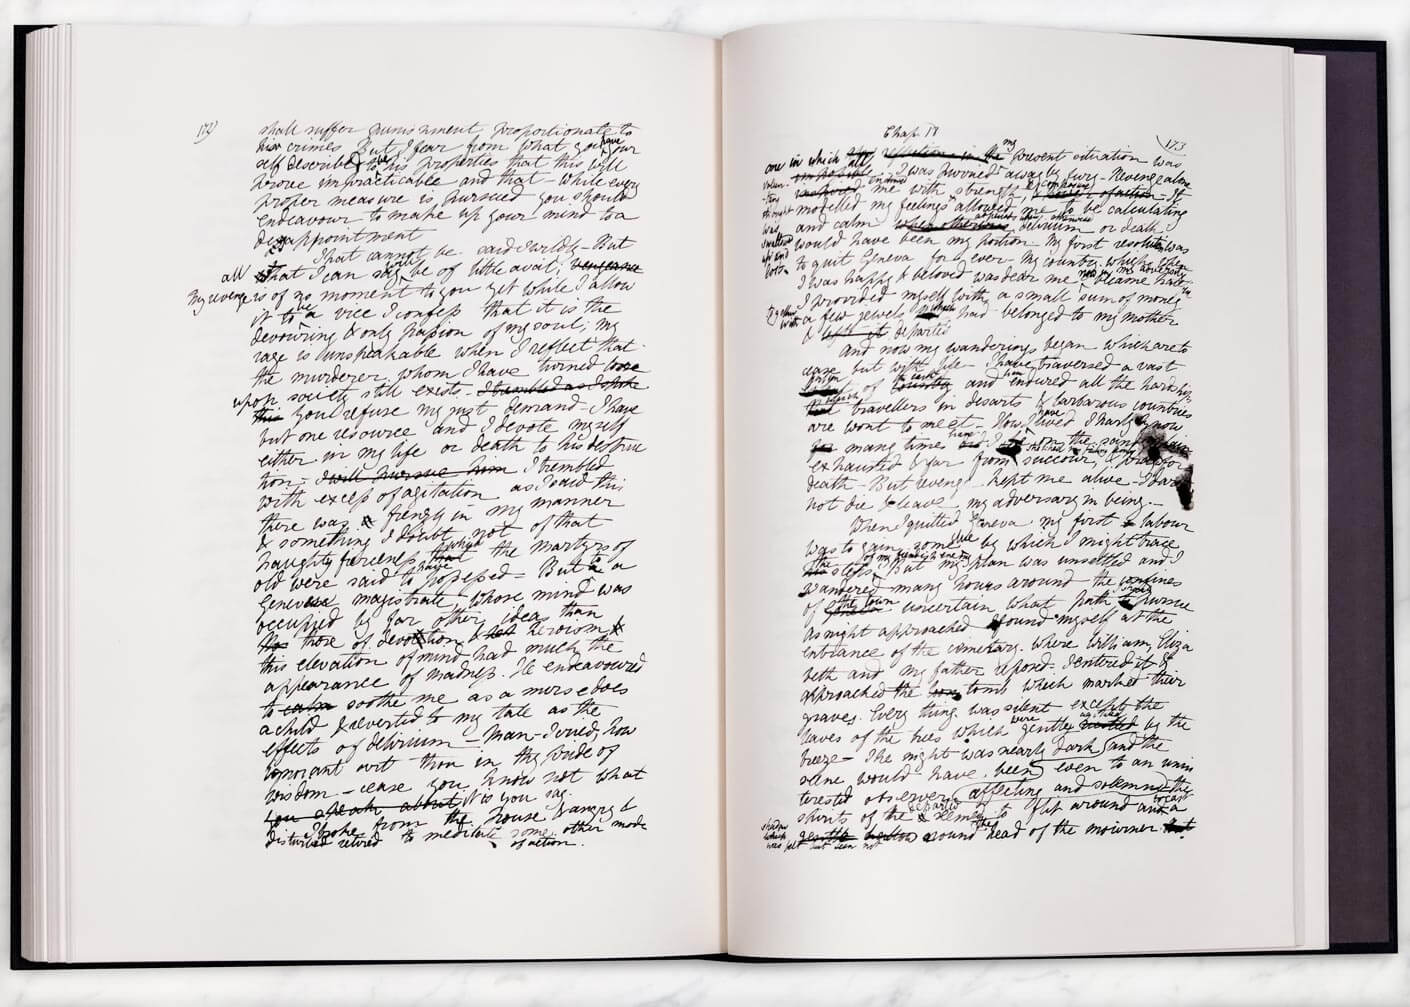 172)
shall suffer punishment proportionate to
his crimes But I fear from what you have your
self described to be his properties that this will
prove impracticable and that while every
proper measure is pursued you should
endeavour to make up your mind to a
disappointment
That cannot be said I wildly - But
all that I can say will be of little avail; vengeance
My revenge is of no moment to you yet while I allow
it to be a vice I confess that it is the
devouring & only passion of my soul; my
rage is unspeakable when I reflect that
the murderer whom I have turned loose
upon society still exists. I trembled as I spoke
this You refuse my just demand - I have
but one resource and I devote myself
either in my life or death to his destruc
tion - I will pursue him I trembled
with excess of agitation as I said this
there was a frenzy in my manner
& something I doubt not of that
haughty fierceness that which the martyrs of
old were said to have possessed - But to a
Genevese magistrate whose mind was
occupied by far other ideas than
those of devotion & heroism
this elevation of mind had much the
appearance of madness. He endeavoured
to calm soothe me as a nurse does
a child & reverted to my tale as the
effects of delirium - Man - I cried, how
ignorant art thou in thy pride of
wisdom - cease you know not what
you speak about it is you say.
I broke from the house & angry &
disturbed retired to meditate some other mode
of action.
Chap. 17
173
one in which all reflection in the my present situation was
I was hurried away by fury - Revenge alone
me with strength & composure it
modelled my feelings & allowed me to be calculating
and calm when otherwise delirium or death
would have been my portion. My first resolution was
to quit Geneva for ever - My country which when
I was happy & beloved was dear me now in my adversity became hate
I provided myself with a small sum of money
together with a few jewels which had belonged to my mother
& left it departed
And now my wanderings began which are to
cease but with life - I have traversed a vast
portion of the earth country and have endured all the hardships
which travellers in desarts & barbarous countries
are wont to meet - How I have lived I hardly know
many times have I
exhausted & far from succour, & prayed for
death - But revenge kept me alive - I dared
not die & leave my adversary in being -
When I quitted Geneva my first labour
was to gain some clue by which I might trace
the steps of my fiendish enemy But my plan was unsettled and I
wandered many hours around the confines
of the town uncertain what path I should pursue
As night approached I found myself at the
entrance of the cemetary where William, Eliza
beth and my father reposed - I entered it &
approached the tomb which marked their
graves. Every thing was silent except the
leaves of the trees which were gently agitated by the
breeze - The night was nearly dark and the
scene would have been even to an unin
terested observer affecting and solemn the
spirits of the departed seemed to flit around and to cast a
shadow which was felt but seen not around the head of the mourner